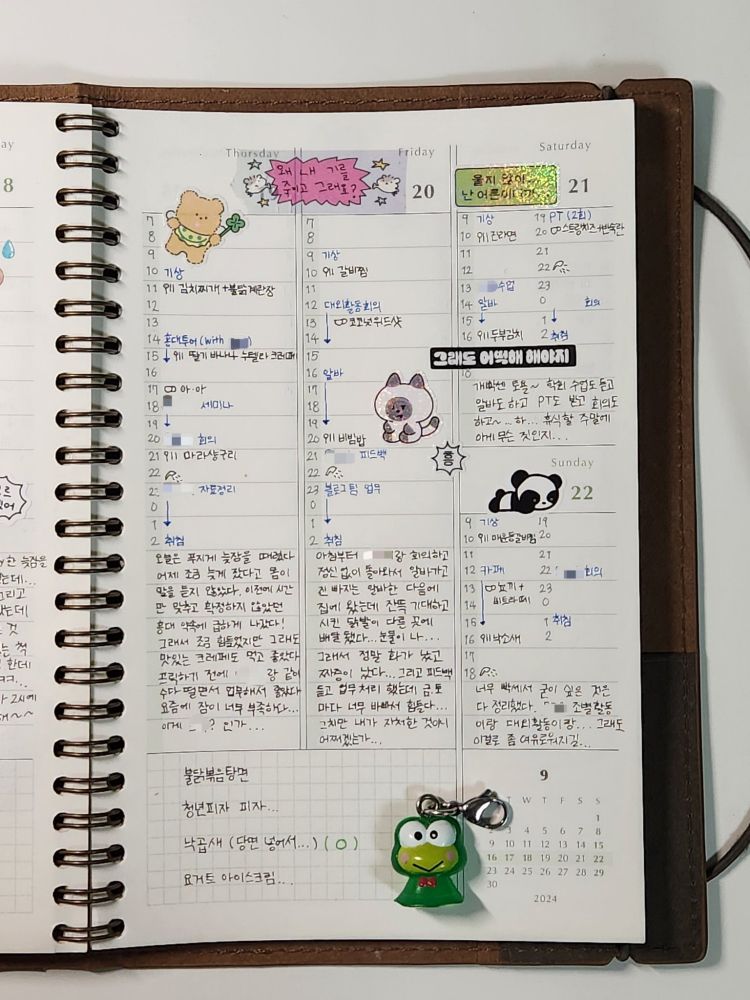 Thursday
왜 내 기를
죽이고 그래요?
7
8
9
10 기상
11 위 김치찌개 + 불닭계란장
12
13
14 홍대투어 (with
15 위 딸기 바나나 누텔라 크레페
16
17 아·아
18 세미나
19
20 회의
21 위 마라샹구리
22
23 자료정리
0
1
2 취침
오늘은 푹지게 늦잠을 때렸다
어제 조금 늦게 잤다고 몸이
말을 듣지 않았다. 이전에 시간
만 맞추고 확정하지 않았던
홍대 약속에 급하게 나갔다!
그래서 조금 힘들었지만 그래도
맛있는 크레페도 먹고 좋았다
프립하기 전에 랑 같이
수다 떨면서 업무해서 좋았다
요즘에 잠이 너무 부족하다...
이게 ? 인가....
Friday
20
7
8
9 기상
10 위 갈비찜
11
12 대외활동회의
13 코코넛위드샷
14
15
16 알바
17
18
19
20 위 비빔밥
21 피드백
22
23 블로그팀 업무
0
1
2 취침
흥
아침부터 랑 회의하고
정신 없이 돌아와서 알바가고
진 빠지는 알바한 다음에
집에 왔는데 잔뜩 기대하고
시킨 닭발이 다른 곳에
배달 됐다...눈물이 나....
그래서 정말 화가 났고
짜증이 났다...그리고 피드백
듣고 업무처리 했는데 금토
마다 너무 바빠서 힘들다...
그치만 내가 자처한 것이니
어쩌겠는가...
Saturday
울지 않아..
난 어른이니까..
21
9 기상 19 PT (2회)
10 위 진라면 20 스트링치즈+반숙란
11 21
12 22
13 수업 23
14 알바 0
15 1 회의
16 위 두부김치 2 취침
그래도 어떡해 해야지
18
하고~..하... 휴식할 주말에
이게 무슨 짓인지...
Sunday
22
9 기상 19
10 위 매운돌갈비찜 20
11 21
12 카페 22 회의
13 쿄끼 + 23
14 비트라떼 0
15 1 취침
16 위 낙소새 2
17
18
너무 빡세서 굳이 싶은 것은
다 정리했다. 조별활동
이랑 대외활동이랑... 그래도
이걸로 좀 여유로워지길...
불닭볶음탕면
청년피자 피자...
낙곱새 (당면 넣어서...) (O)
요거트 아이스크림...
9
T W T F S S
1
3 4 5 6 7 8
9 10 11 12 13 14 15
16 17 18 19 20 21 22
23 24 25 26 27 28 29
30
2024